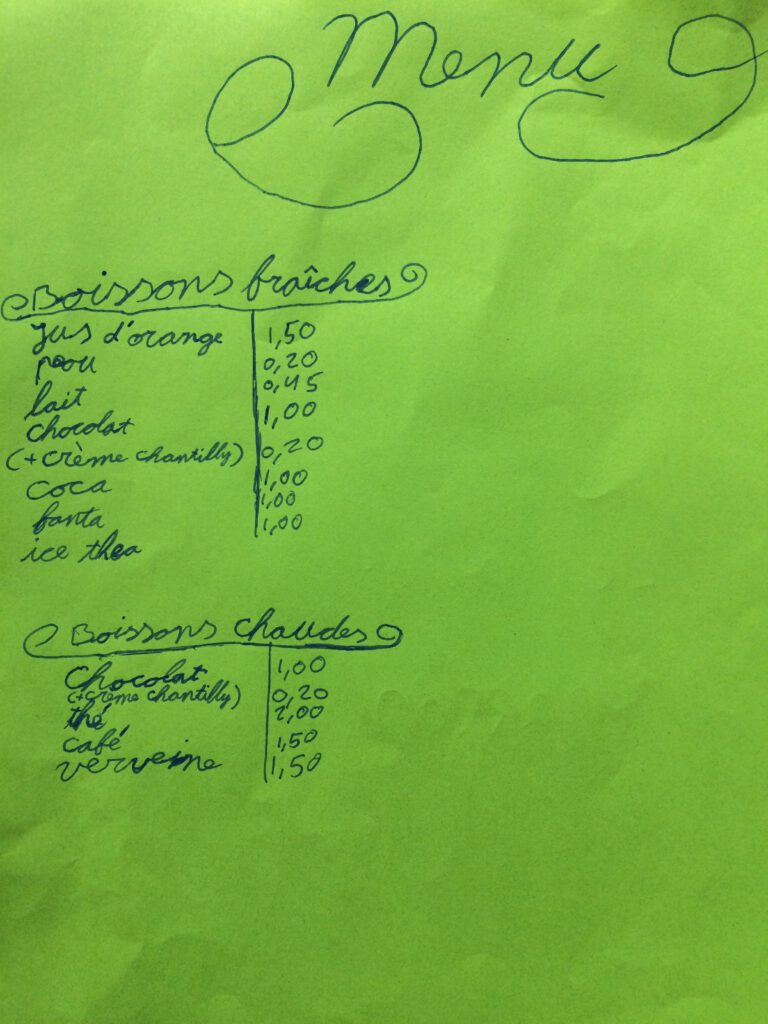 Menu
Boissons fraîches
jus d'orange 1,50
0,20
lait 0,45
chocolat 1,00
(+ crème chantilly) 0,20
coca 1,00
fanta 1,00
ice thea 1,00
Boissons chaudes
Chocolat 1,00
(+crème chantilly) 0,20
thé 2,00
café 1,50
verveine 1,50